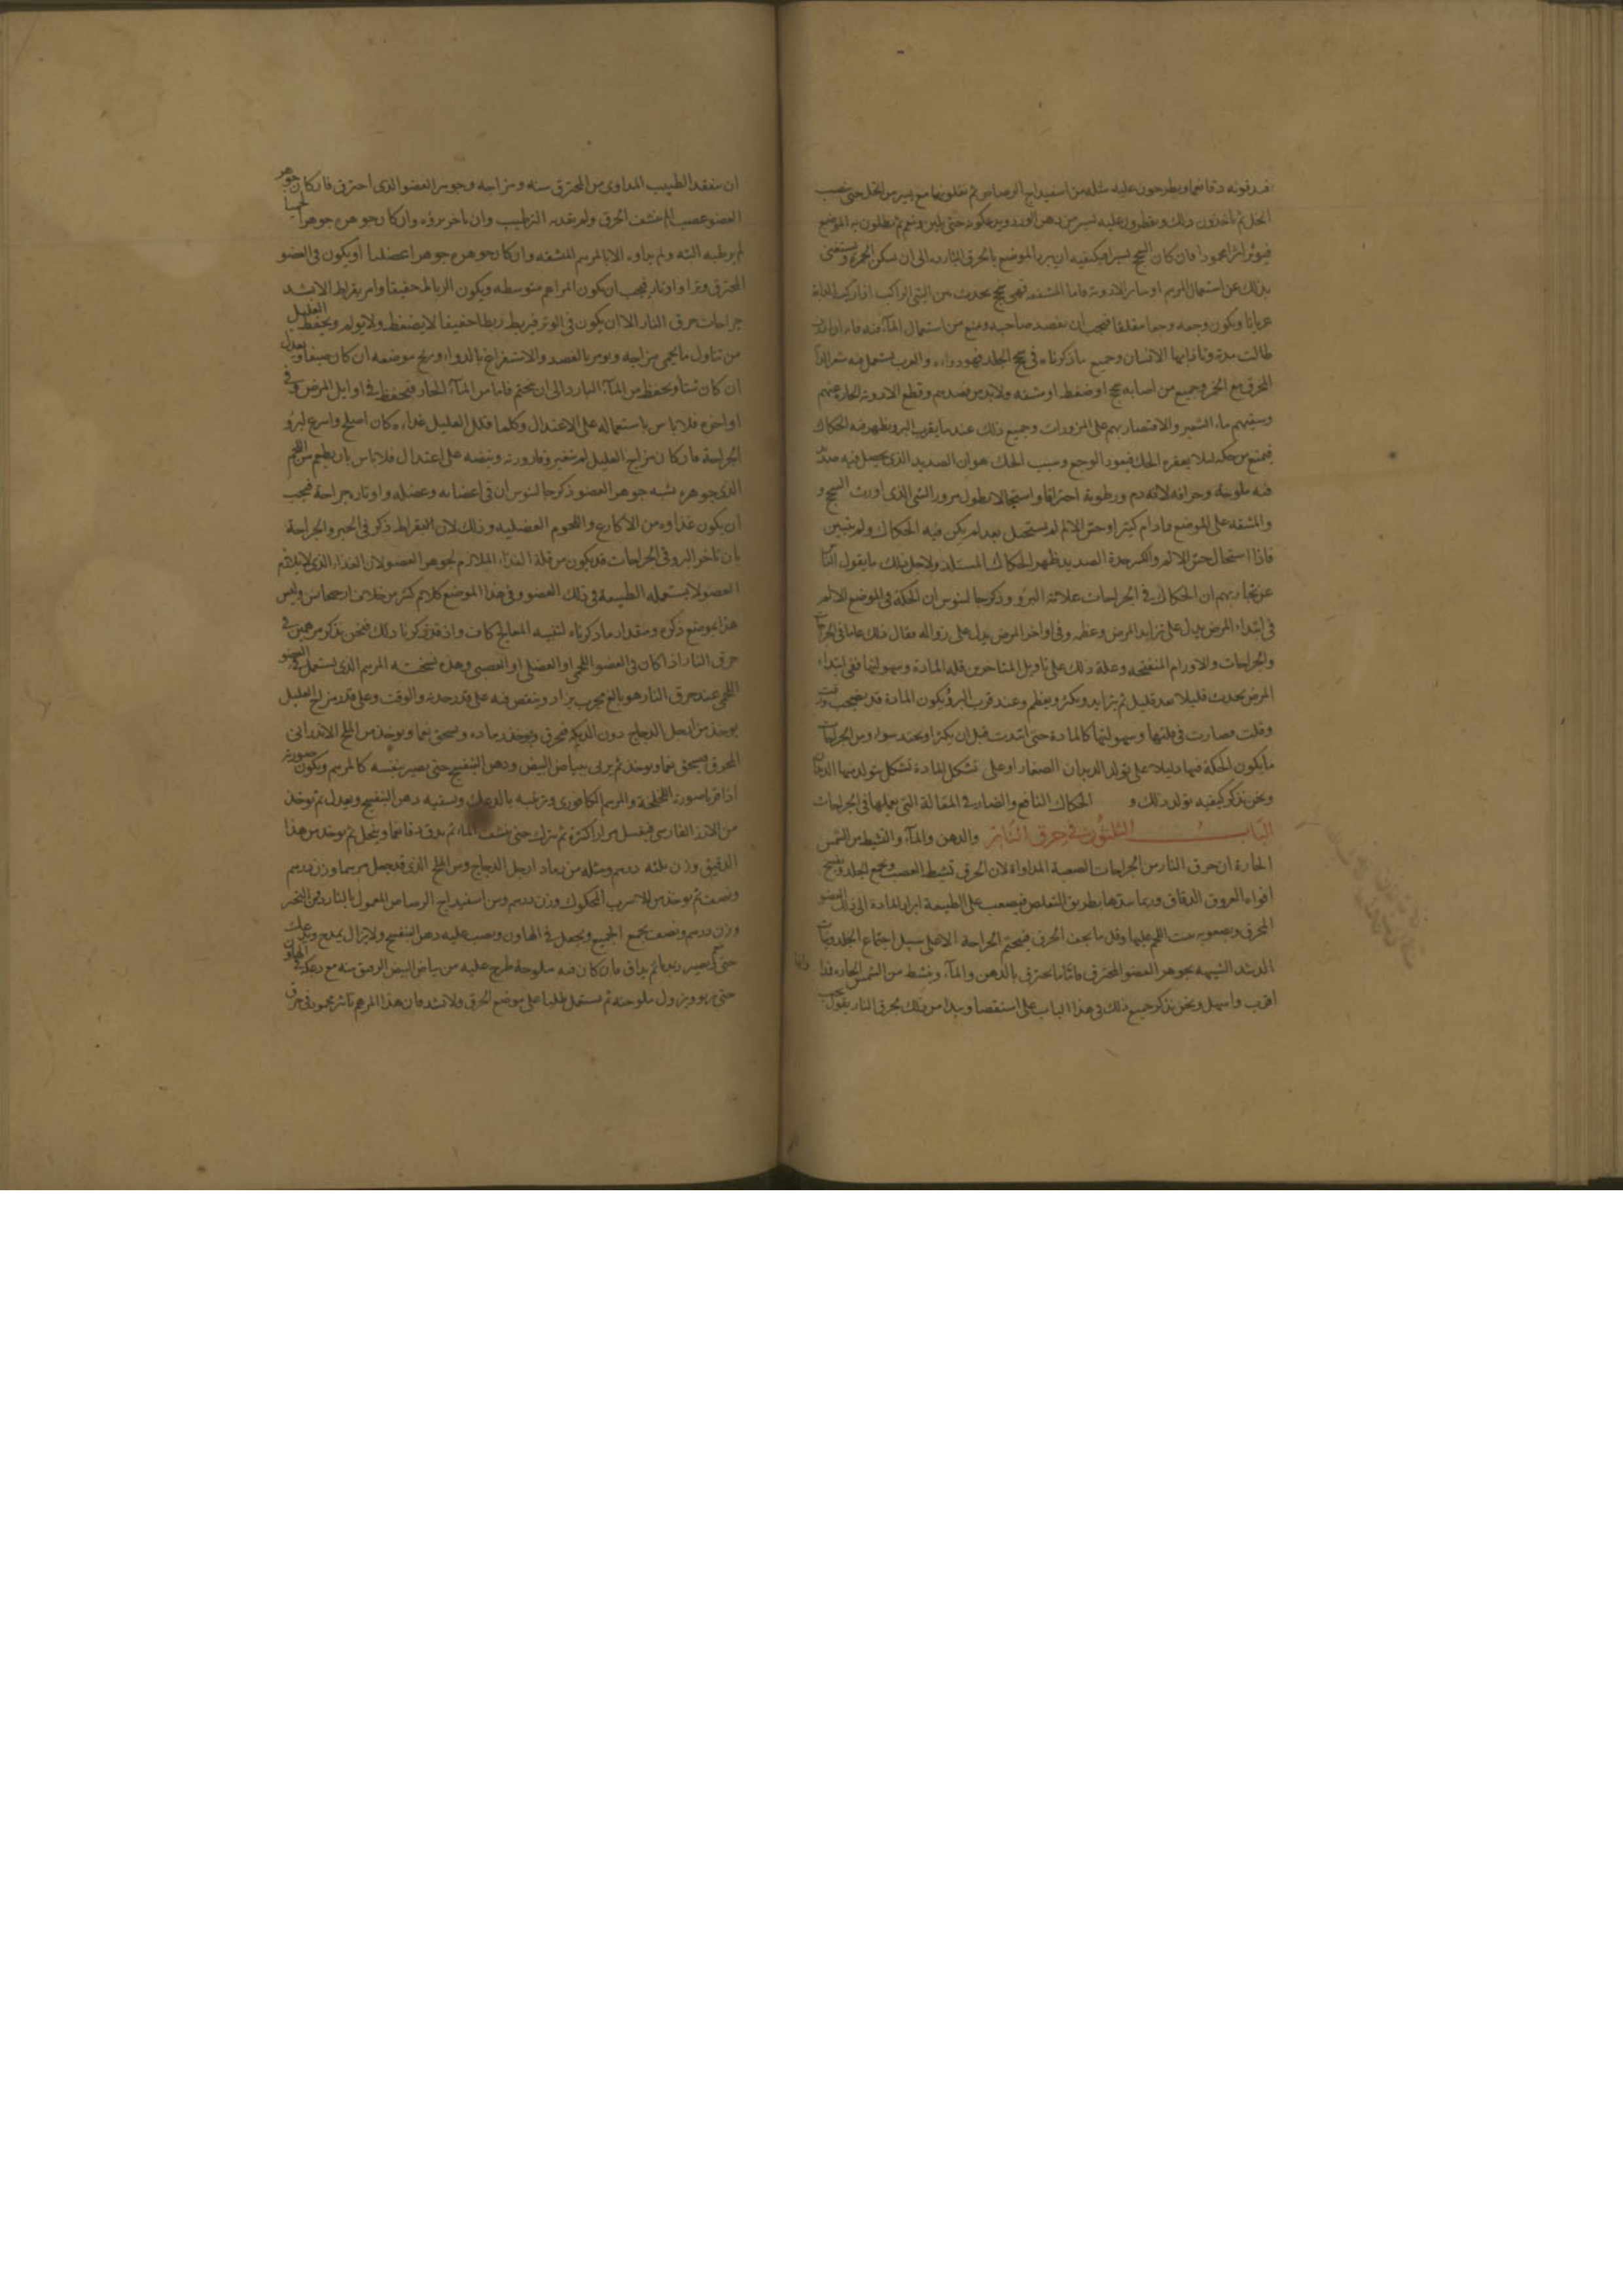 فيدقونه دقا ناعما ويطرحون عليه مثله من اسفيداج الرصاص ثم يغلونها مع يسير من الخل حتى
الخل ثم ياخذون ذلك ويقطرون عليه يسير من دهن الورد حتى يلين وينعم ثم يطلون به الموضع
فيوثر اثرا محمودا فان كان السحج يسيرا فيكفيه ان يبرد الموضع بالخرق الباردة الى ان يسكن الحمرة ويستغنى
بذلك عن استعمال المرهم او ساير الادوية فاما المشقه فهى سحج يحدث من الشى الراكب اذا ركب الدابة
عريانا ويكون وجعه وجعا مقلقا فيجب ان يفصد صاحبه ويمنع من استعمال المآء
طالت مدته وجميع ما ذكرناه فى سحج الجلد فهو دواء والعرب تستعمل فيه
المحرق مع الخمر وجميع من اصابه سحج او ضغط او مشقه ولابد من فصدهم وقطع الادوية الحارة عنهم
وسقيهم ماء الشعير والاقتصار بهم على المزورات وجميع ذلك عند ما يقرب البرو يظهر فيه الحكاك
فيمنع من حكه ليلا يعقره الحك فيعود الوجع وسبب الحك هو ان الصديد الذى يحصل فيه
فيه ملوحة وحرافه لانه دم ورطوبة احترقا واستحالا بطول مرور الشى الذى اورث السحج و
والمشقه على الموضع فما دام كثيرا وحس الالم لم يستحيل بعد لم يكن فيه الحكاك ولم يتبين
فاذا استحال حس الالم وانكسر حدة الصديد ظهر الحكاك المستلذ ولاجل ذلك ما يقول الناس
عن تجاربهم ان الحكاك فى الجراحات علامة البرؤ وذكر جالينوس ان الحكة فى الموضع الالم
فى ابتداء المرض يدل على تزايد المرض وعظمه وفى اواخر المرض يدل على زواله فقال ذلك عاما فى الجراحات
والجراحات والاورام المنفتحه وعلة ذلك على تاويل المتاخرين قلة المادة وسهولتها ففى ابتداء
المرض يحدث قليلا بعد قليل ثم يتزايد ويكثر ويعظم وعند قرب البرؤ يكون المادة قد نضجت
وقلت فصارت فى قلتها وسهولتها كالمادة حتى ابتدت قبل ان يكثر او يحتد سواء ومن الجراحات
ما يكون الحكة فيها دليلا على تولد الديدان الصغار او على تشكل المادة تشكل يتولد منها الديدان
ونحن نذكر كيفيه تولد ذلك و الحكاك النافع والضار فى المقالة التى نعملها فى الجراحات
الباب الثلثون فى حرق النار والدهن والمآء والتشيط من الشمس
الحارة ان حرق النار من الجراحات الصعبة المداواة لان الحرق تشيط العصب ويجمع الجلد
افواه العروق الدقاق وربما سدتها بطريق التقلص فيصعب على الطبيعة ايراد المادة الى ذلك العضو
المحرق ويصعوبه نبت اللحم عليها وقل ما يجف الحرق فيختم الجراحة الا على سبيل اجتماع الجلد ونبات
الدشبد الشبيهه بجوهر العضو المحترق فاما ما احترق بالدهن والمآء وتشيط من الشمس الحارة فذا
اقرب واسهل ونحن نذكر جميع ذلك فى هذا الباب على استقصا ونبدا من ذلك بحرق النار يقول يجب
ان يتفقد الطبيب المداوى من المحترق سنه ومزاجه وجوهر العضو الذى احترق فان كان جوهر
العضو عصب لم ينشف الحرق ولم يقدم الترطيب وان تاخر بروه وان كان جوهره جوهرا لحميا
لم يرطبه البته ولم يداوه الا بالمرهم المنشفه وان كان جوهره جوهرا عضليا او يكون فى العضو
المحترق وترا او اوتار فيجب ان يكون المراهم متوسطه ويكون الرباط خفيفا وامر بقراط الا يشد
جراحات حرق النار الا ان يكون فى الوتر فيربط ربطا خفيفا لا يضغط ولا يولم ويحفظ العليل
من تناول ما يحمى مزاجه ويومر بالفصد والاستفراغ بالدواء ويروح موضعه ان كان صيفا ويعدل
ان كان شتا ويحفظ من المآء البارد الى ان يختم فاما من المآء الحار فيحفظ فى اوايل المرض وفى
اواخره فلا باس باستعماله على الاعتدال وكلما قلل العليل غذاءه كان اصلح واسرع لبرؤ
الجراحة فان كان مزاج العليل لم يتغير وقارورته ونبضه على اعتدال فلا باس بان يطعم من اللحم
الذى جوهره يشبه جوهر العضو ذكر جالينوس ان فى اعضائه وعضله واوتاره جراحة فيجب
ان يكون غذاوه من الاكارع واللحوم العضليه وذلك لان البقراط ذكر فى الجبر والجراحة
بان تاخر البرو فى الجراحات قد يكون من قلة الغذاء الملازم لجوهر العضو لان الغذاء الذى لا يلائم
العضو لا يستعمله الطبيعة فى ذلك العضو وفى هذا الموضع كلام كثير من خلاف ارجحانس وليس
هذا بموضع ذكره ومقدار ما ذكرناه لتنبيه المعالج كاف واذ قد ذكرنا ذلك فنحن نذكر مرهمين فى
حرق النار اذا كان فى العضو اللحمى او العضلى او العصبى وهذه نسخة المرهم الذى يستعمل فى العضو
اللحمى عند حرق النار هو بالغ مجرب يزاد وينقص فيه على قدر حدته والوقت وعلى قدر مزاج العليل
يوخذ من ارجل الدجاج دون الديكة فيحرق ويوخذ رماده ويسحق نعما ويوخذ من الملح الاندرانى
المحرق فيسحق نعما ويوخذ ثم يربى ببياض البيض ودهن البنفسج حتى يصير بنفسه كالمرهم ويكون صورته
اذا فرغ صورة اللخلخة والمرهم الكافورى وتربيه بالدعك وتسقيه دهن البنفسج ويعدل ثم يوخذ
من الارز الفارسى فيغسل مرارا كثيرة ثم يترك حتى ينشف الماء ثم يدق دقا ناعما وينخل ثم يوخذ من هذا
الدقيق وزن ثلثه درهم ومثله من رماد ارجل الدجاج ومن الملح الذى قد جعل مرهما وزن درهم
ونصف ثم يوخذ من الاسرب المحكوك وزن درهم ومن اسفيداج الرصاص المعمول بالنار دون الخمر
وزن درهم ونصف يجمع الجميع ويجعل فى الهاون ويصب عليه دهن البنفسج ولا يزال يمدج ويدعك
حتى يصير ثم يذاق فان كان فيه ملوحة طرح عليه من بياض البيض الرقيق منه مع دعكه فى الهاون
حتى يربو ويزول ملوحته ثم يستعمل طليا على موضع الحرق ولا تشد فان هذا المرهم تاثير محمود فى حرق